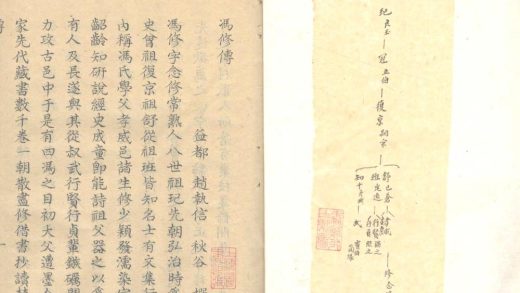 玘良玉
冠正伯
復京嗣宗
舒已蒼
班定遠
行賢
行貞
知十
武
竇伯
馮修傳
益都趙執信秋谷
馮修字念修常熟人八世祖玘先朝弘治時
史曾祖復京祖舒從祖班皆知名士有文集行
内稱馮氏學父孝威邑諸生修少穎發濡染家
齠齡知研說經史成童即能詩祖父器之以為
有人及長遂與其從叔武行賢行貞輩鏃礪
力攻古邑中于是有四馮之目初大父遭墨
家先代藏書數千卷一朝散盡修借書抄讀
傳